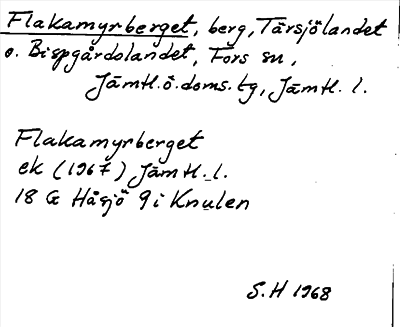 Flakamyrberget, berg, Tärsjölandet
o. Bispgårdolandet, Fors sn,
Jämtl.ö.doms.tg, Jämtl. l.
Flakamyrberget
ek (1967) Jämtl. l.
18 G Håsjö 9 i Knulen
S.H 1968